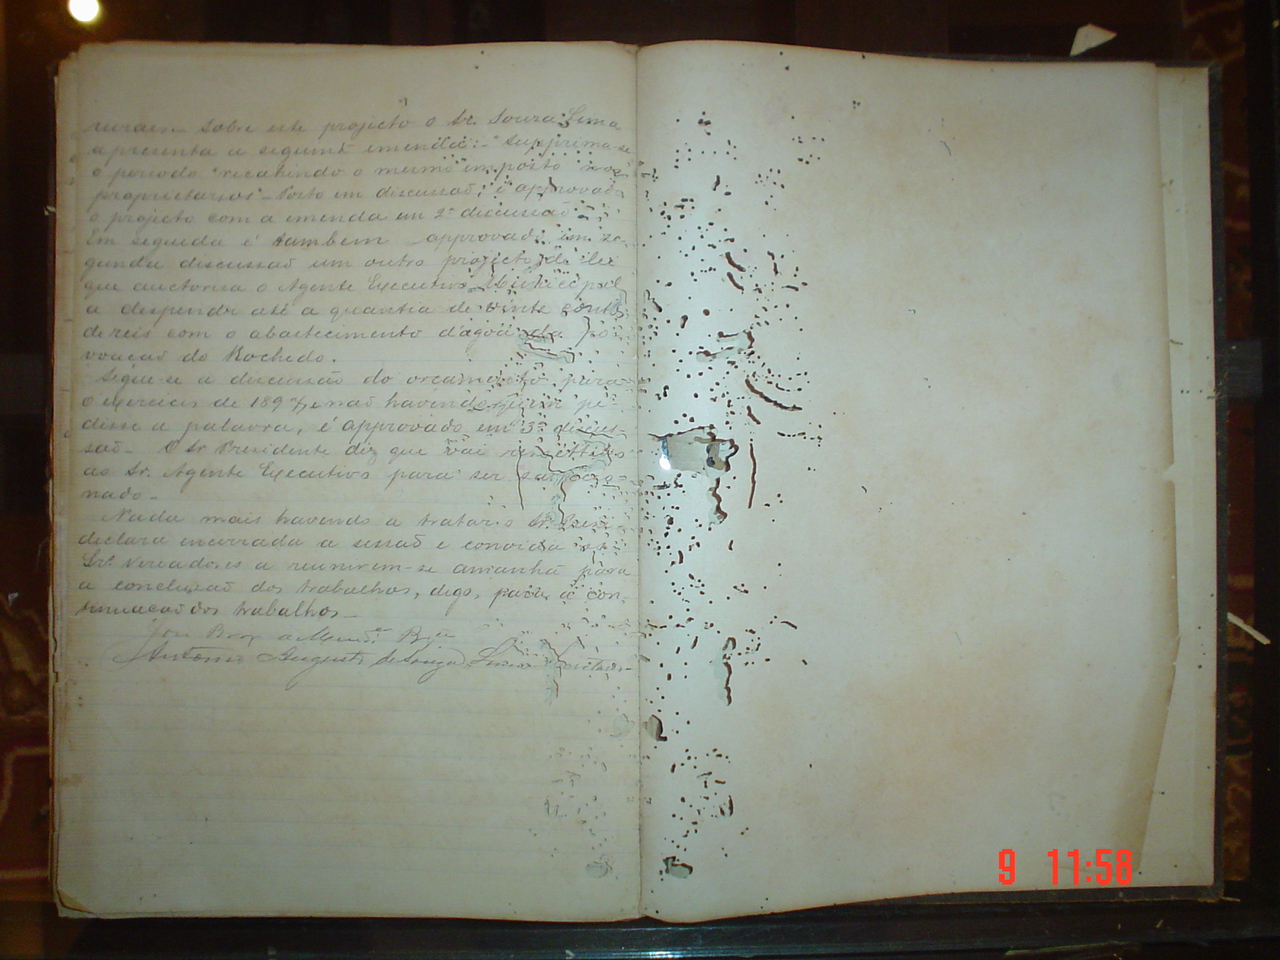 ruraes. Sobre este projecto o Sr. Souza Lima
apresenta a seguinte emenda: - "Supprima-se
o periodo "recahindo o mesmo imposto nos
proprietarios" - Posto em discussão, é approvado
o projecto com a emenda em 2ª discussão.
Em seguida é tambem approvado em se-
gunda discussão um outro projecto de lei
que auctorisa o Agente Executivo Municipal
a despender até a quantia de vinte contos
de reis com o abastecimento d'agoa da po-
voação do Rochedo.
Segue-se a discussão do orçamento para
o exercicio de 1897, e não havendo quem pe-
disse a palavra, é approvado em 3ª discus-
são. O Sr. Presidente diz que vai remettel-o
ao Sr. Agente Executivo para ser sanccio-
nado -
Nada mais havendo a tratar o Sr. Presi.
declara encerrada a sessão e convida os
Srs. Vereadores a reunirem-se amanhã para
a conclusão dos trabalhos, digo, para a con-
tinuação dos trabalhos -
José
Antonio Augusto de Souza Lima
9 11:58